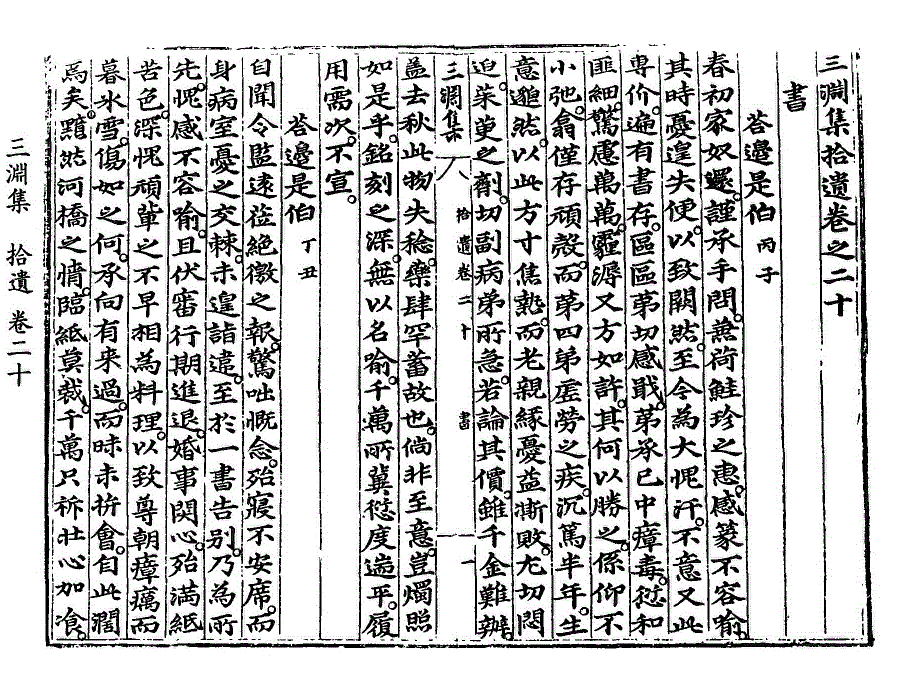 三淵集拾遺卷之二十
書
答邊是伯 丙子
春初家奴還。謹承手問。兼荷鮭珍之惠。感篆不容喻。
其時憂遑失便。以致闕然。至令為大愧汗。不意又此
專价。遍有書存。區區第切感戢。第承已中瘴毒。愆和
匪細。驚慮萬萬。霾溽又方如許。其何以勝之。係仰不
小弛。翕僅存頑殼。而第四弟虛勞之疾。沉篤半年。生
意邈然。以此方寸焦熱。而老親緣憂益澌敗。尤切悶
迫。茱萸之劑。切副病弟所急。若論其價。雖千金難辦。
三淵集 八 拾遺卷二十 書 一
盖去秋此物失稔。藥肆罕蓄故也。倘非至意。豈燭照
如是乎。銘刻之深。無以名喻。千萬所冀愆度遄平。履
用需次。不宣。
答邊是伯 丁丑
自聞令監遠莅絶徼之報。驚咄慨念。殆寢不安席。而
身病室憂之交棘。未遑詣違。至於一書告别。乃為所
先。愧感不容喻。且伏審行期進退。婚事関心。殆滿紙
苦色。深愧頑軰之不早相為料理。以致尊朝瘴癘而
暮氷雪。傷如之何。承向有来過。而昧未拚會。自此濶
焉矣。黯然河橋之情。臨紙莫裁。千萬只祈壯心加飡。
三淵集 拾遺 卷二十